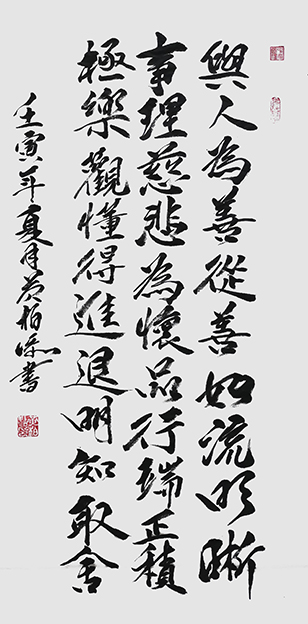 與人為善從善如流明晰
事理慈悲為懷品行端正積
極樂觀懂得進退明知取舍
壬寅年夏月黄柏書